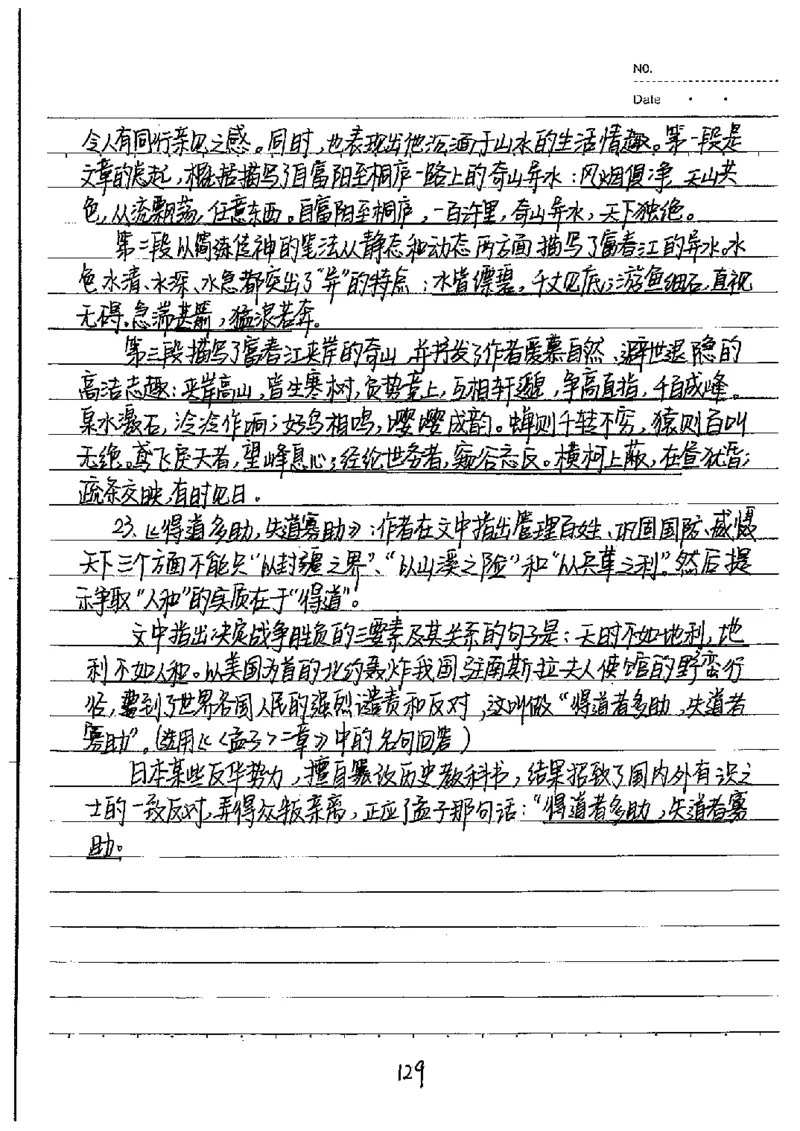 NO.
Date
令人有同行亲见之感。同时,也表现出他沉湎于山水的生活情趣。第一段是
文章的总起,概括描写了自富阳至桐庐一路上的奇山异水:风烟俱净,天山共
色,从流飘荡,任意东西。自富阳至桐庐,一百许里,奇山异水,天下独绝。
第二段以简练传神的笔法从静态和动态两方面描写了富春江的异水。水
色水清、水深、水急都突出了“异”的特点:水皆缥碧,千丈见底;游鱼细石,直视
无碍。急湍甚箭,猛浪若奔。
第三段描写了富春江夹岸的奇山,并抒发了作者爱慕自然、避世退隐的
高洁志趣:夹岸高山,皆生寒树,负势竞上,互相轩邈,争高直指,千百成峰。
泉水激石,泠泠作响;好鸟相鸣,嘤嘤成韵。蝉则千转不穷,猿则百叫
无绝。鸢飞戾天者,望峰息心;经纶世务者,窥谷忘反。横柯上蔽,在昼犹昏;
疏条交映,有时见日。
23.《得道多助,失道寡助》:作者在文中指出管理百姓、巩固国防、威慑
天下三个方面不能只“以封疆之界”、“以山溪之险”和“以兵革之利”。然后提
示争取“人和”的实质在于“得道”。
文中指出决定战争胜负的三要素及其关系的句子是:天时不如地利,地
利不如人和。以美国为首的北约轰炸我国驻南斯拉夫大使馆的野蛮行
径,遭到了世界各国人民的强烈谴责和反对,这叫做“得道者多助,失道者
寡助”。(选用《<孟子>二章》中的名句回答)
日本某些反华势力,擅自篡改历史教科书,结果招致了国内外有识之
士的一致反对,弄得众叛亲离,正应了孟子那句话:“得道者多助,失道者寡
助。
129